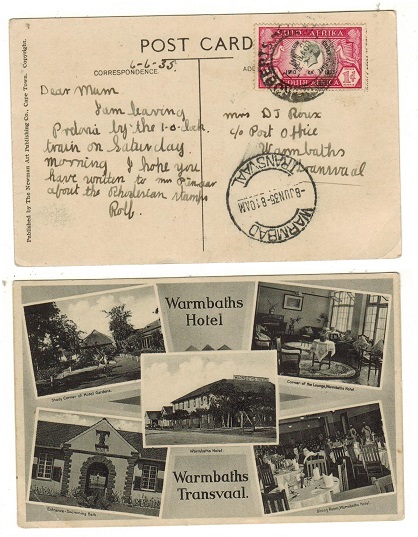 POST CARD
CORRESPONDENCE
6-6-35
Dear Mum
I am leaving
Pretoria by the 1-0-clock
train on Saturday
morning I hope you
have written to mrs
about the Rhodesian stamps
Rolf
Published by The Newman Art Publishing Co., Cape Town. Copyright.
SUID-AFRIKA
SOUTH AFRICA
mrs DJ Roux
c/o Post Office
Warmbaths
Transvaal
WARMBAD
TRANSVAAL
-8 JUN 35-8 10AM
Warmbaths
Hotel
Shady Corner of Hotel Gardens.
Corner of the Lounge, Warmbaths Hotel.
Warmbaths Hotel
Entrance-Swimming Bath
Warmbaths
Transvaal.
Dining Room, Warmbaths Hotel.